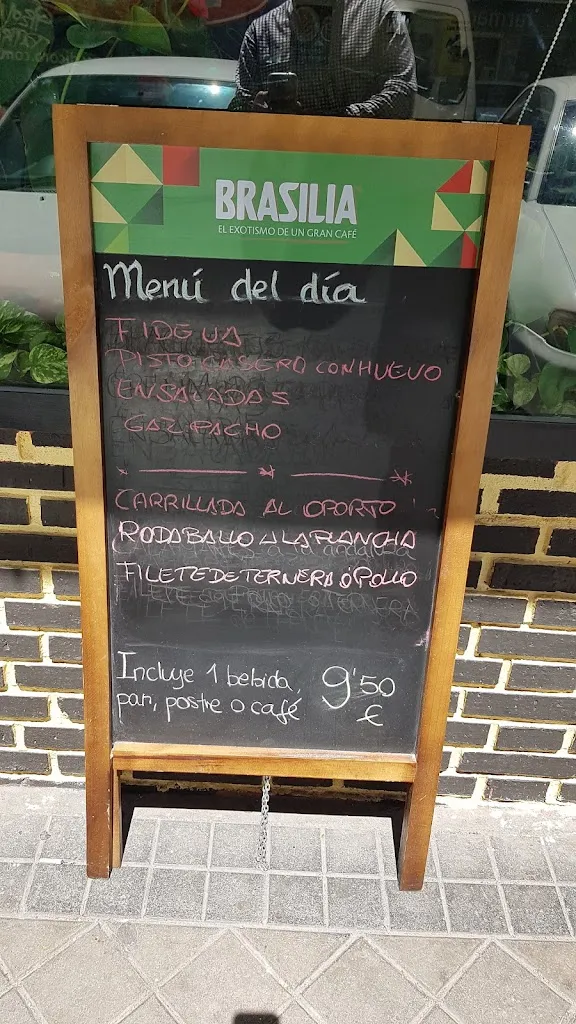 BRASILIA
EL EXOTISMO DE UN GRAN CAFÉ
Menú del día
FIDEGUA
PISTO CASERO CON HUEVO
ENSALADAS
GAZPACHO
CARRILLADA AL OPORTO
RODABALLO A LA PLANCHA
FILETE DE TERNERA Ó POLLO
Incluye 1 bebida, 9'50
pan, postre o café €